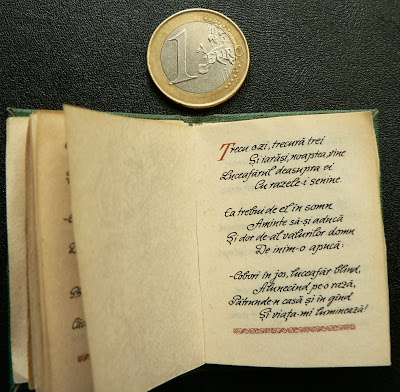 1
EURO
-
D
Trecu o zi, trecură trei
Și iarăși, noaptea, vine
Luceafărul deasupra ei
Cu razele-i senine.
Ea trebui de el în somn
Aminte să-și aducă
Și dor de-al valurilor domn
De inim-o apucă:
-Cobori în jos, luceafăr blînd,
Alunecînd pe-o rază,
Pătrunde-n casă și în gînd
Și viața-mi luminează!